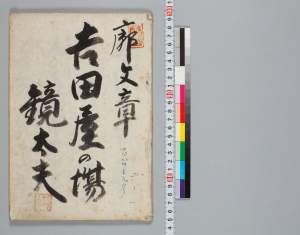 廓文章
吉田屋の場
鏡太夫